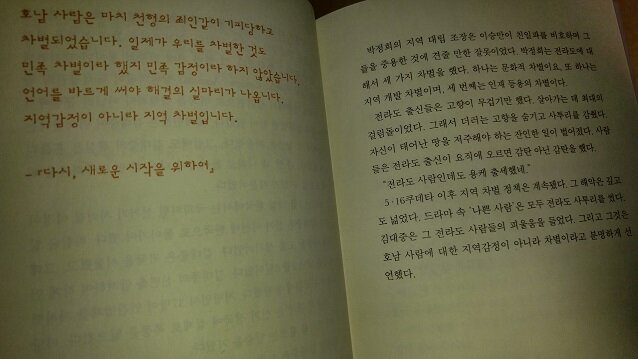 호남 사람은 마치 천형의 죄인같이 기피당하고
차별되었습니다. 일제가 우리를 차별한 것도
민족 차별이라 했지 민족 감정이라 하지 않았습니다.
언어를 바르게 써야 해결의 실마리가 나옵니다.
지역감정이 아니라 지역 차별입니다.
_『다시, 새로운 시작을 위하여』
박정희의 지역 대립 조장은 이승만이 친일파를 비호하며 그
들을 중용한 것에 견줄 만한 잘못이었다. 박정희는 전라도에 대
해서 세 가지 차별을 했다. 하나는 문화적 차별이요, 또 하나는
지역 개발 차별이며, 세 번째는 인재 등용의 차별이다.
전라도 출신들은 고향이 무겁기만 했다. 살아가는 데 최대의
걸림돌이었다. 그래서 더러는 고향을 숨기고 사투리를 감췄다.
자신이 태어난 땅을 저주해야 하는 잔인한 일이 벌어졌다. 사람
들은 전라도 출신이 요직에 오르면 감탄 아닌 감탄을 했다.
"전라도 사람인데도 용케 출세했네."
5·16쿠데타 이후 지역 차별 정책은 계속됐다. 그 해악은 깊고
도 넓었다. 드라마 속 '나쁜 사람'은 모두 전라도 사투리를 썼다.
김대중은 그 전라도 사람들의 피울음을 들었다. 그리고 그것은
호남 사람에 대한 지역감정이 아니라 차별이라고 분명하게 선
언했다.